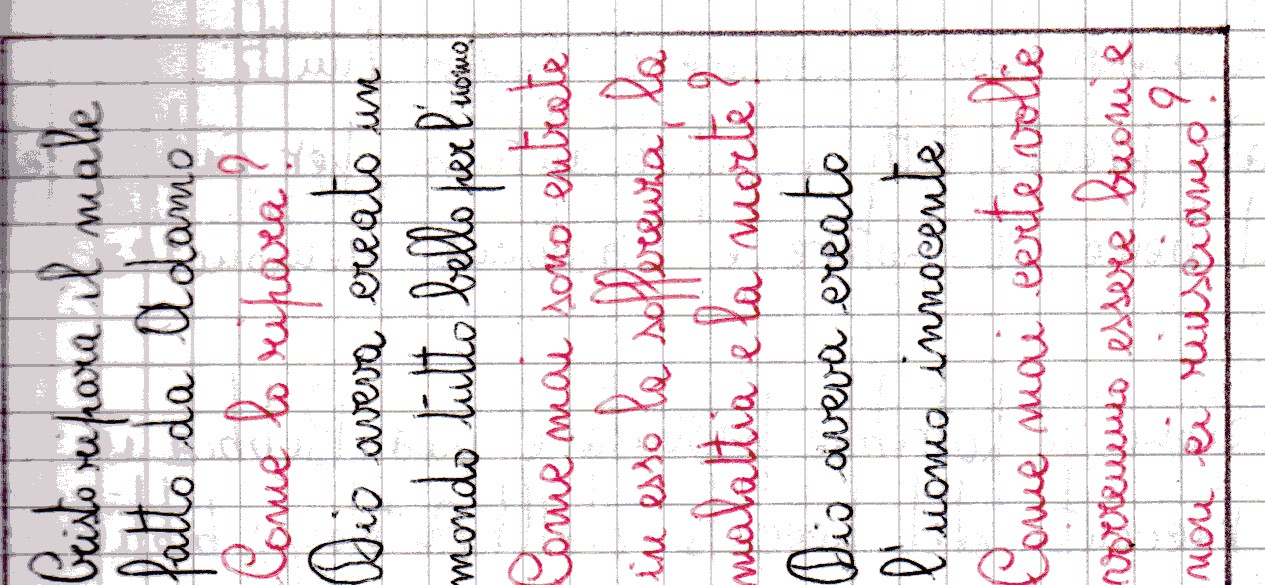 Cristo ripara il male
fatto da Adamo
Come lo ripara?
Dio aveva creato un
mondo tutto bello per l'uomo.
Come mai sono entrate
in esso la sofferenza la
malattia e la morte?
Dio aveva creato
l'uomo innocente
Come mai certe volte
vorremmo essere buoni e
non ci riusciamo?